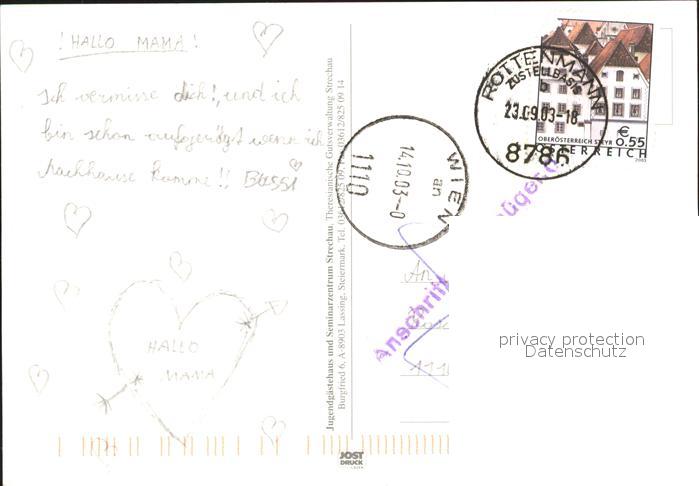 ! HALLO MAMA !
Ich vermisse dich!, und ich
bin schon aufgerägt wenn ich
nachhause komme!! Bussi
HALLO
MAMA
Jugendgästehaus und Seminarzentrum Strechau, Theresianische Gutsverwaltung Strechau
Burgfried 6, A-8903 Lassing, Steiermark, Tel. 03612/825 09 14
JOST
DRUCK
ROTTENMANN
ZUSTELLBASIS
b
23.09.03-18
8786
€
0.55
OBERÖSTERREICH STEYR
ÖSTERREICH
WIEN
an
14.10.03-0
1110
Anschrift
An
111
privacy protection
Datenschutz